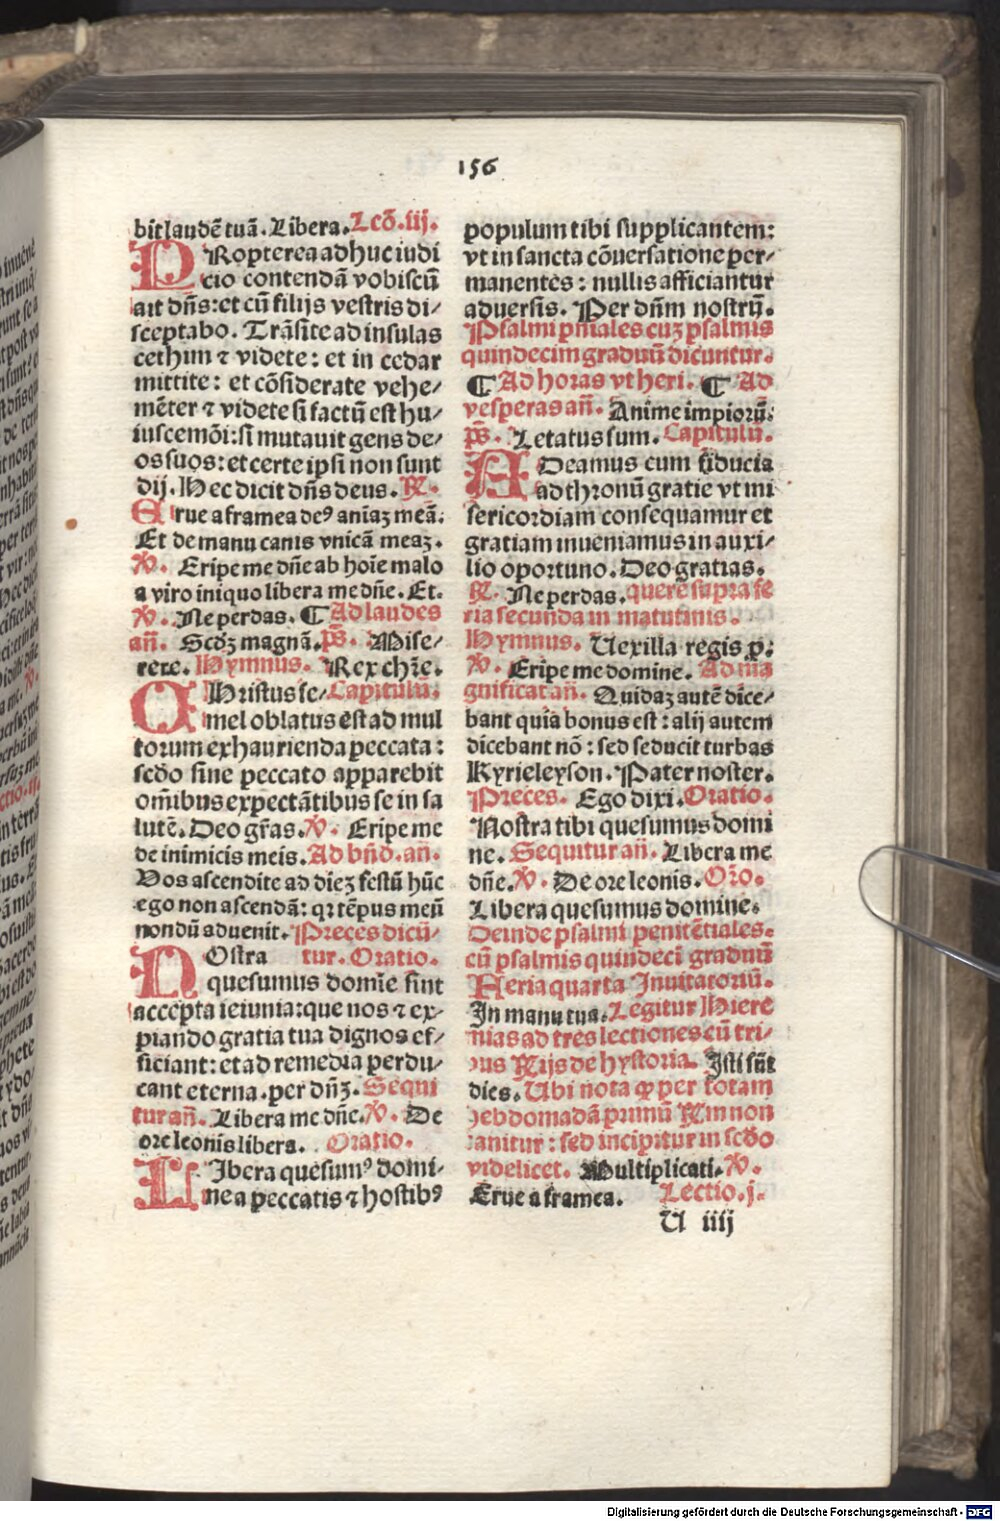 156
bit laudē tuā. Libera. Lcō. iij.
PRopterea adhuc iudi
cio contendā vobiscū
ait dñs: et cū filijs vestris di⸗
sceptabo. Trāsite ad insulas
cethim ⁊ videte: et in cedar
mittite: et cōsiderate vehe⸗
mēter ⁊ videte si factū est hu⸗
iuscemōi: si mutauit gens de⸗
os suos: et certe ipsi non sunt
dij. Hec dicit dñs deus. R.
Erue a framea deꝰ aniaꝫ meā.
Et de manu canis vnicā meaꝫ.
V. Eripe me dñe ab hoīe malo
a viro iniquo libera me dñe. Et.
V. Ne perdas. ¶ Ad laudes
añ. Scdꝫ magnā. ps. Mise⸗
rere. Hymnus. Rex chr̄e.
CHristus se⸗ Capitulū.
mel oblatus est ad mul
torum exhaurienda peccata:
scdo sine peccato apparebit
om̄ibus expectātibus se in sa
lutē. Deo gr̄as. V. Eripe me
de inimicis meis. Ad bñd. añ.
Vos ascendite ad dieꝫ festū hūc
ego non ascendā: qꝛ tēpus meū
nondū aduenit. Preces dicū⸗
NOstra tur. Oratio.
quesumus domīe sint
accepta ieiunia: que nos ⁊ ex⸗
piando gratia tua dignos ef⸗
ficiant: et ad remedia perdu⸗
cant eterna. per dñꝫ. Sequi
tur añ. Libera me dñe. V. De
ore leonis libera. Oratio.
LIbera quesumꝰ domi⸗
ne a peccatis ⁊ hostibꝰ
populum tibi supplicantem:
vt in sancta cōuersatione per⸗
manentes: nullis afficiantur
aduersis. Per dñm nostrū.
Psalmi pñiales cuꝫ psalmis
quindecim graduū dicuntur.
¶ Ad horas vt heri. ¶ Ad
vesperas añ. Anime impiorū.
ps. Letatus sum. Capitulū.
ADeamus cum fiducia
ad thronū gratie vt mi
sericordiam consequamur et
gratiam inueniamus in auxi⸗
lio oportuno. Deo gratias.
R. Ne perdas. quere supra fe
ria secunda in matutinis.
Hymnus. Uexilla regis p.
V. Eripe me domine. Ad ma
gnificat añ. Quidaꝫ autē dice⸗
bant quia bonus est: alij autem
dicebant nō: sed seducit turbas
Kyrieleyson. Pater noster.
Preces. Ego dixi. Oratio.
Nostra tibi quesumus domi
ne. Sequitur añ. Libera me
dñe. V. De ore leonis. Oro.
Libera quesumus domine.
Deinde psalmi penitētiales
cū psalmis quindecī graduū
Feria quarta Inuitatoriū.
In manu tua. Legitur Hiere
mias ad tres lectiones cū tri⸗
bus Rijs de hystoria. Isti sūt
dies. Ubi nota ꝙ per totam
hebdomadā primū Rm non
canitur: sed incipitur in scdo
videlicet. Multiplicati. V.
Erue a framea. Lectio. j.
U iiij
Digitalisierung gefördert durch die Deutsche Forschungsgemeinschaft - DFG